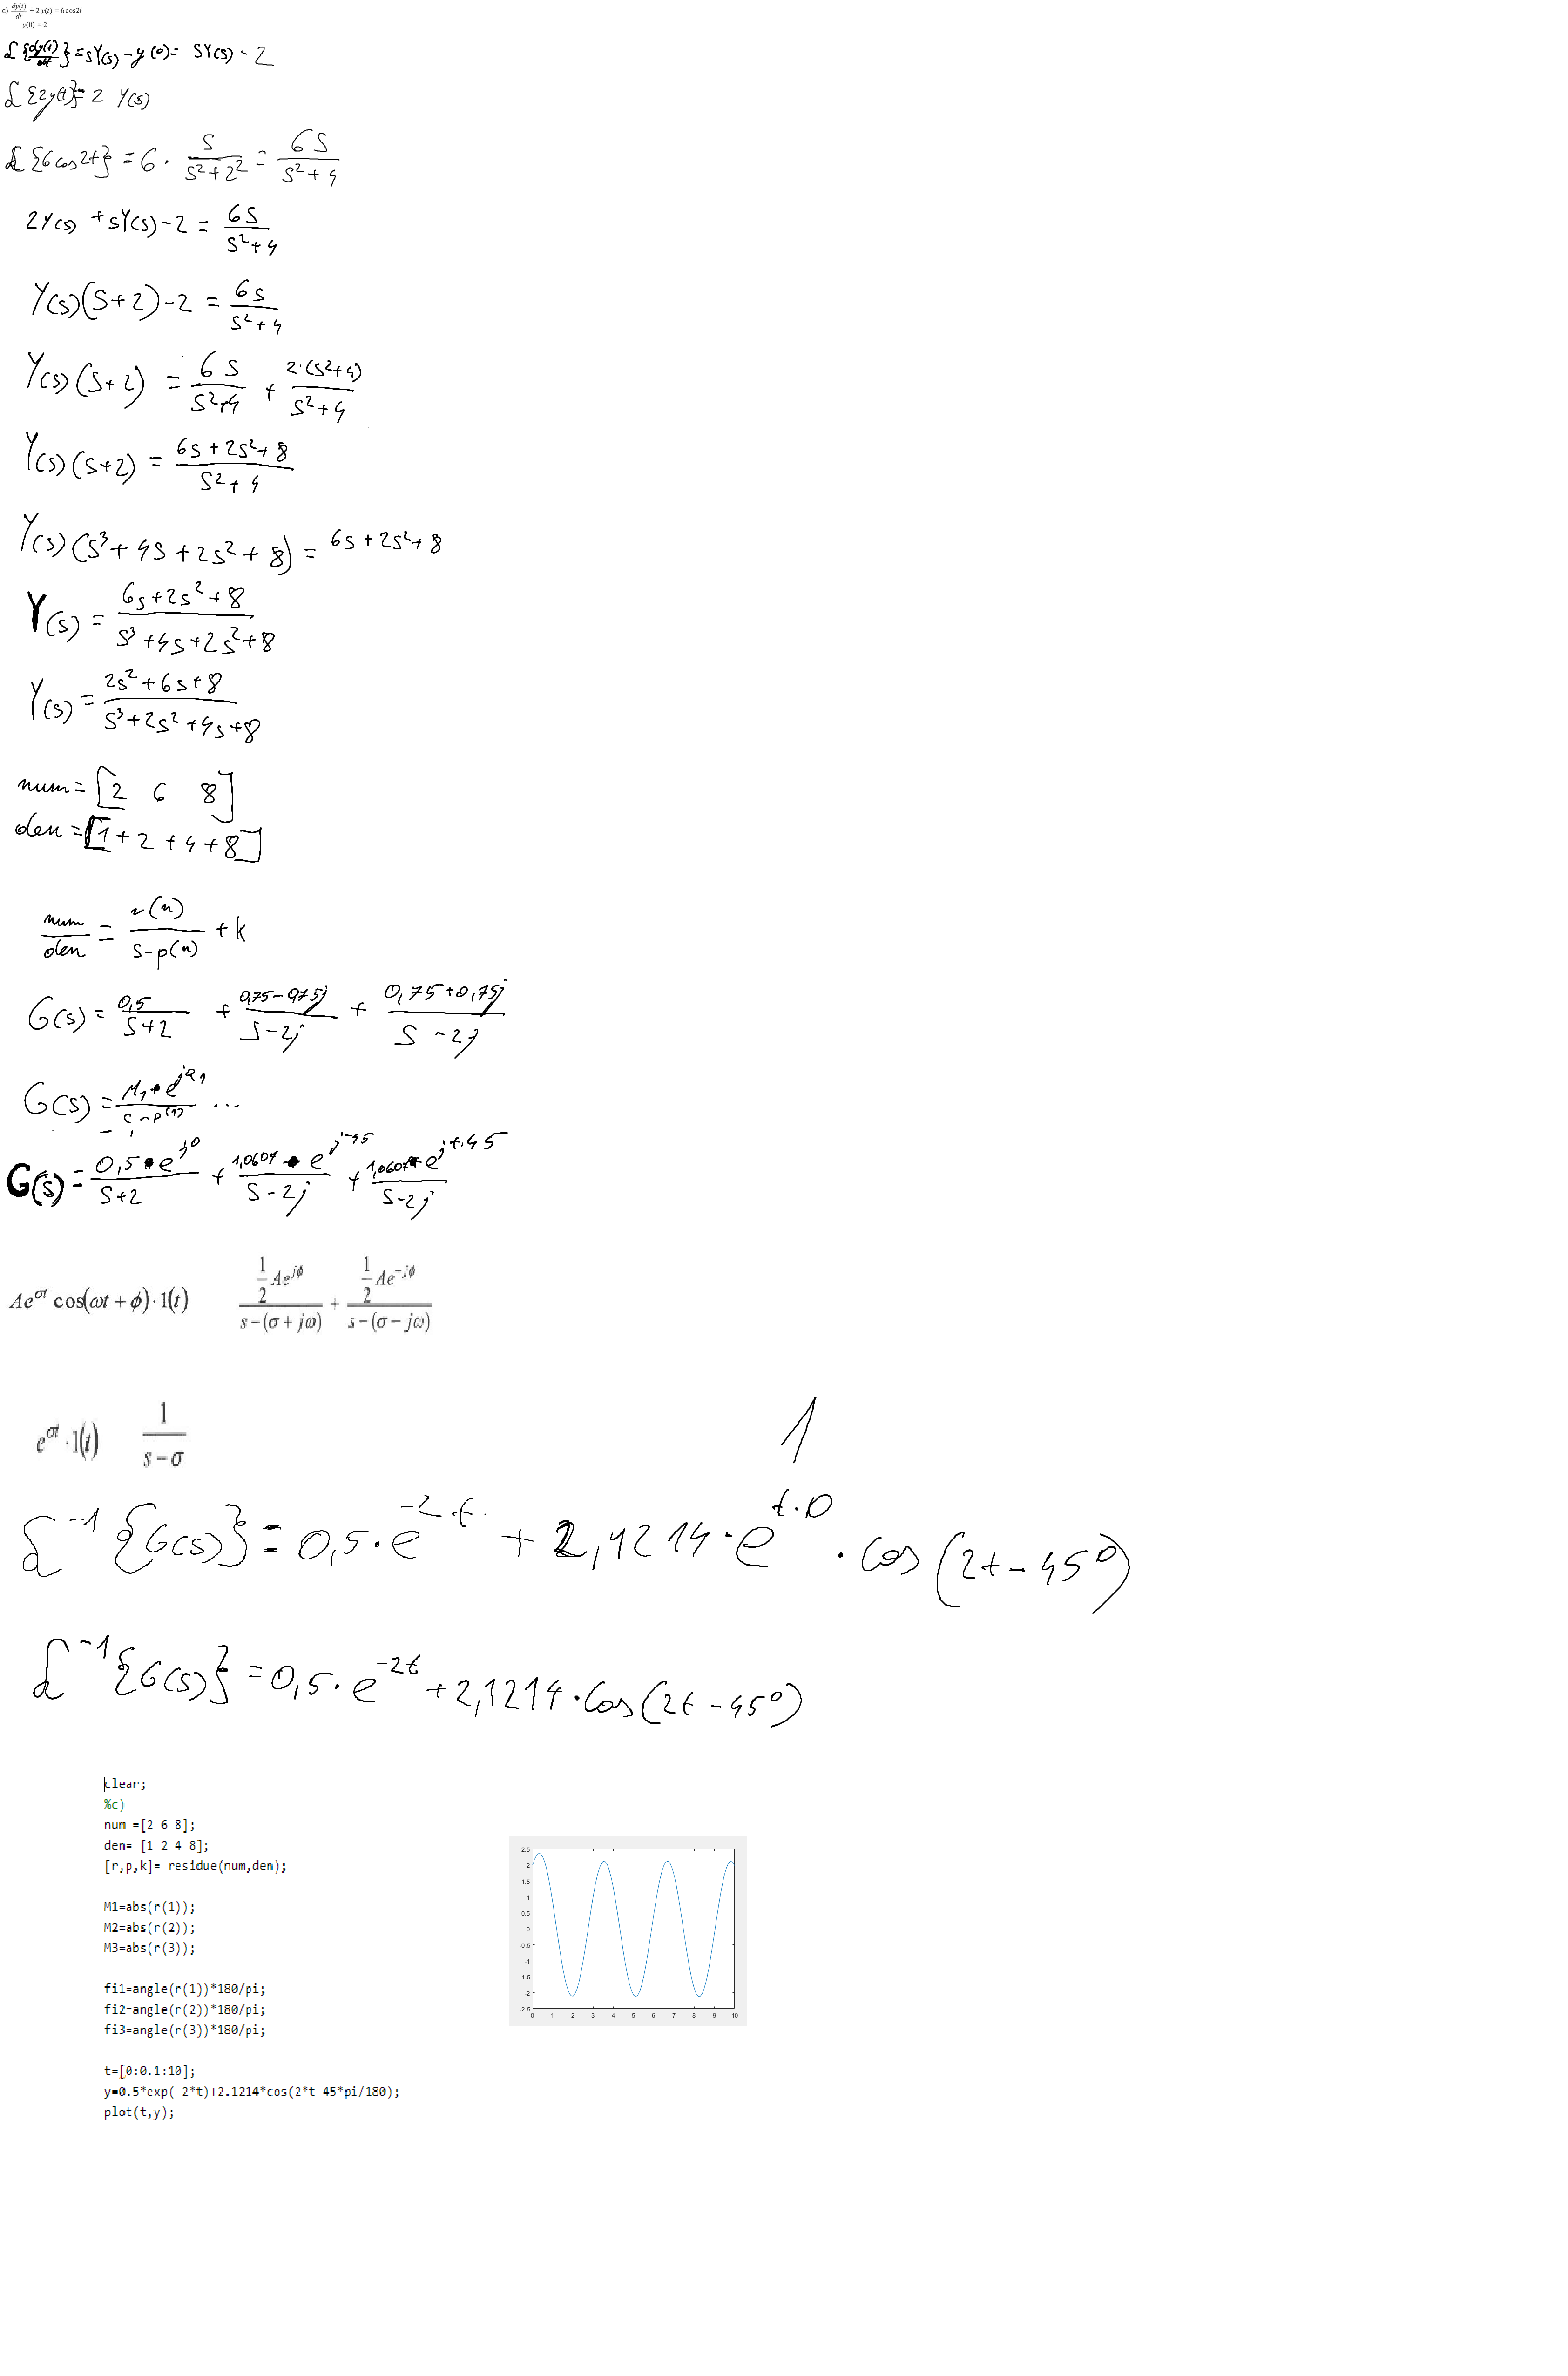 c) dy(t)/dt + 2 y(t) = 6cos2t
y(0) = 2
ℒ{dy(t)/dt} = sY(s) - y(0) = sY(s) - 2
ℒ{2y(t)} = 2 Y(s)
ℒ{6cos2t} = 6 · s/(s²+2²) = 6s/(s²+4)
2Y(s) + sY(s) - 2 = 6s/(s²+4)
Y(s)(s+2) - 2 = 6s/(s²+4)
Y(s)(s+2) = 6s/(s²+4) + 2·(s²+4)/(s²+4)
Y(s)(s+2) = (6s+2s²+8)/(s²+4)
Y(s)(s³+4s+2s²+8) = 6s+2s²+8
Y(s) = (6s+2s²+8)/(s³+4s+2s²+8)
Y(s) = (2s²+6s+8)/(s³+2s²+4s+8)
num = [2 6 8]
den = [1+2+4+8]
num/den = r(n)/(s-p(n)) + k
G(s) = 0,5/(s+2) + (0,75-0,75j)/(s-2j) + (0,75+0,75j)/(s-2j)
G(s) = M₁·e^(jφ1)/(s-p(1)) ...
G(s) = 0,5·e^(j0)/(s+2) + 1,0607·e^(j-45)/(s-2j) + 1,0607·e^(j+45)/(s-2j)
Ae^(σt) cos(ωt+ϕ)·1(t) (1/2 Ae^(jϕ))/(s-(σ+jω)) + (1/2 Ae^(-jϕ))/(s-(σ-jω))
e^(σt)·1(t) 1/(s-σ)
1
ℒ⁻¹{G(s)} = 0,5·e^(-2t) + 2,1214·e^(t·0)·cos(2t-45°)
ℒ⁻¹{G(s)} = 0,5·e^(-2t) + 2,1214·cos(2t-45°)
clear;
%c)
num =[2 6 8];
den= [1 2 4 8];
[r,p,k]= residue(num,den);
M1=abs(r(1));
M2=abs(r(2));
M3=abs(r(3));
fi1=angle(r(1))*180/pi;
fi2=angle(r(2))*180/pi;
fi3=angle(r(3))*180/pi;
t=[0:0.1:10];
y=0.5*exp(-2*t)+2.1214*cos(2*t-45*pi/180);
plot(t,y);
2.5
2
1.5
1
0.5
0
-0.5
-1
-1.5
-2
-2.5
0 1 2 3 4 5 6 7 8 9 10